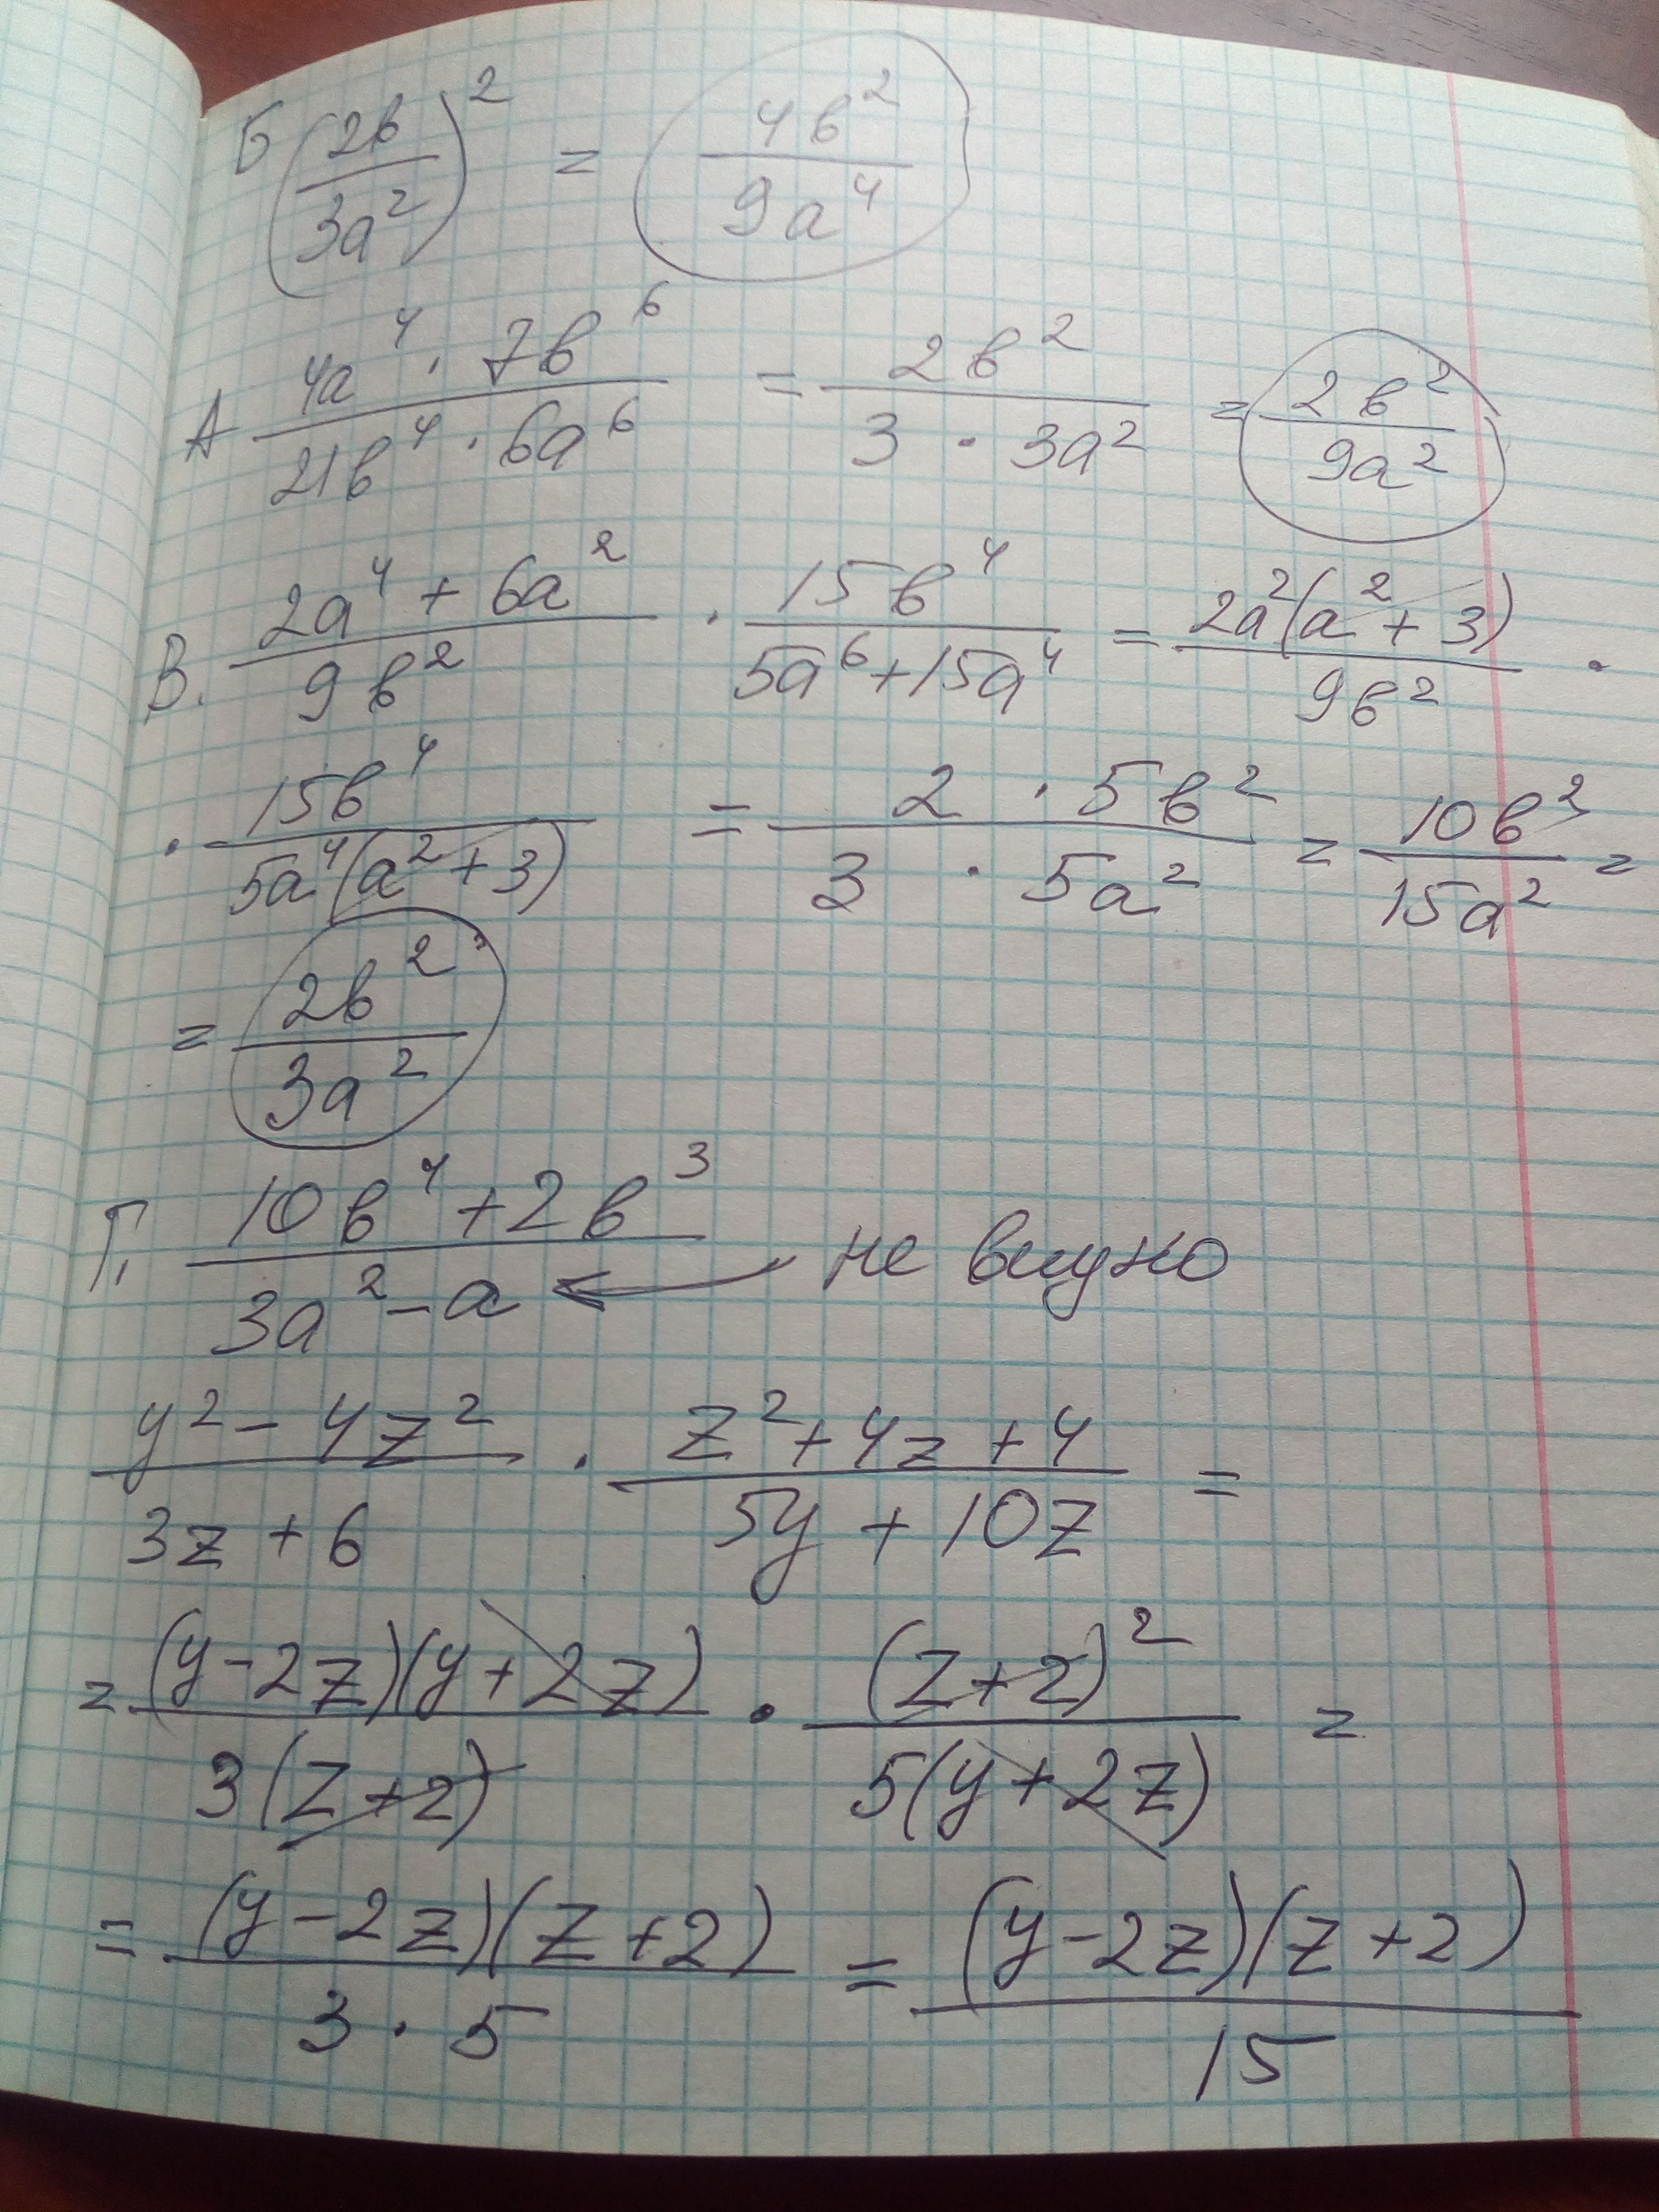 Б (2в/3a²)² = 4в²/9a⁴
А 4a⁴ · 7в⁶ / 21в⁴ · 6a⁶ = 2в² / 3 · 3a² = 2в²/9a²
В. 2a⁴ + 6a² / 9в² · 15в⁴ / 5a⁶ + 15a⁴ = 2a²(a² + 3) / 9в² ·
· 15в⁴ / 5a⁴(a² + 3) = 2 · 5в² / 3 · 5a² = 10в² / 15a² =
= 2в² / 3a²
Г. 10в⁴ + 2в³ / 3a² - a ← не видно
y² - 4z² / 3z + 6 · z² + 4z + 4 / 5y + 10z =
= (y - 2z)(y + 2z) / 3(z + 2) · (z + 2)² / 5(y + 2z) =
= (y - 2z)(z + 2) / 3 · 5 = (y - 2z)(z + 2) / 15